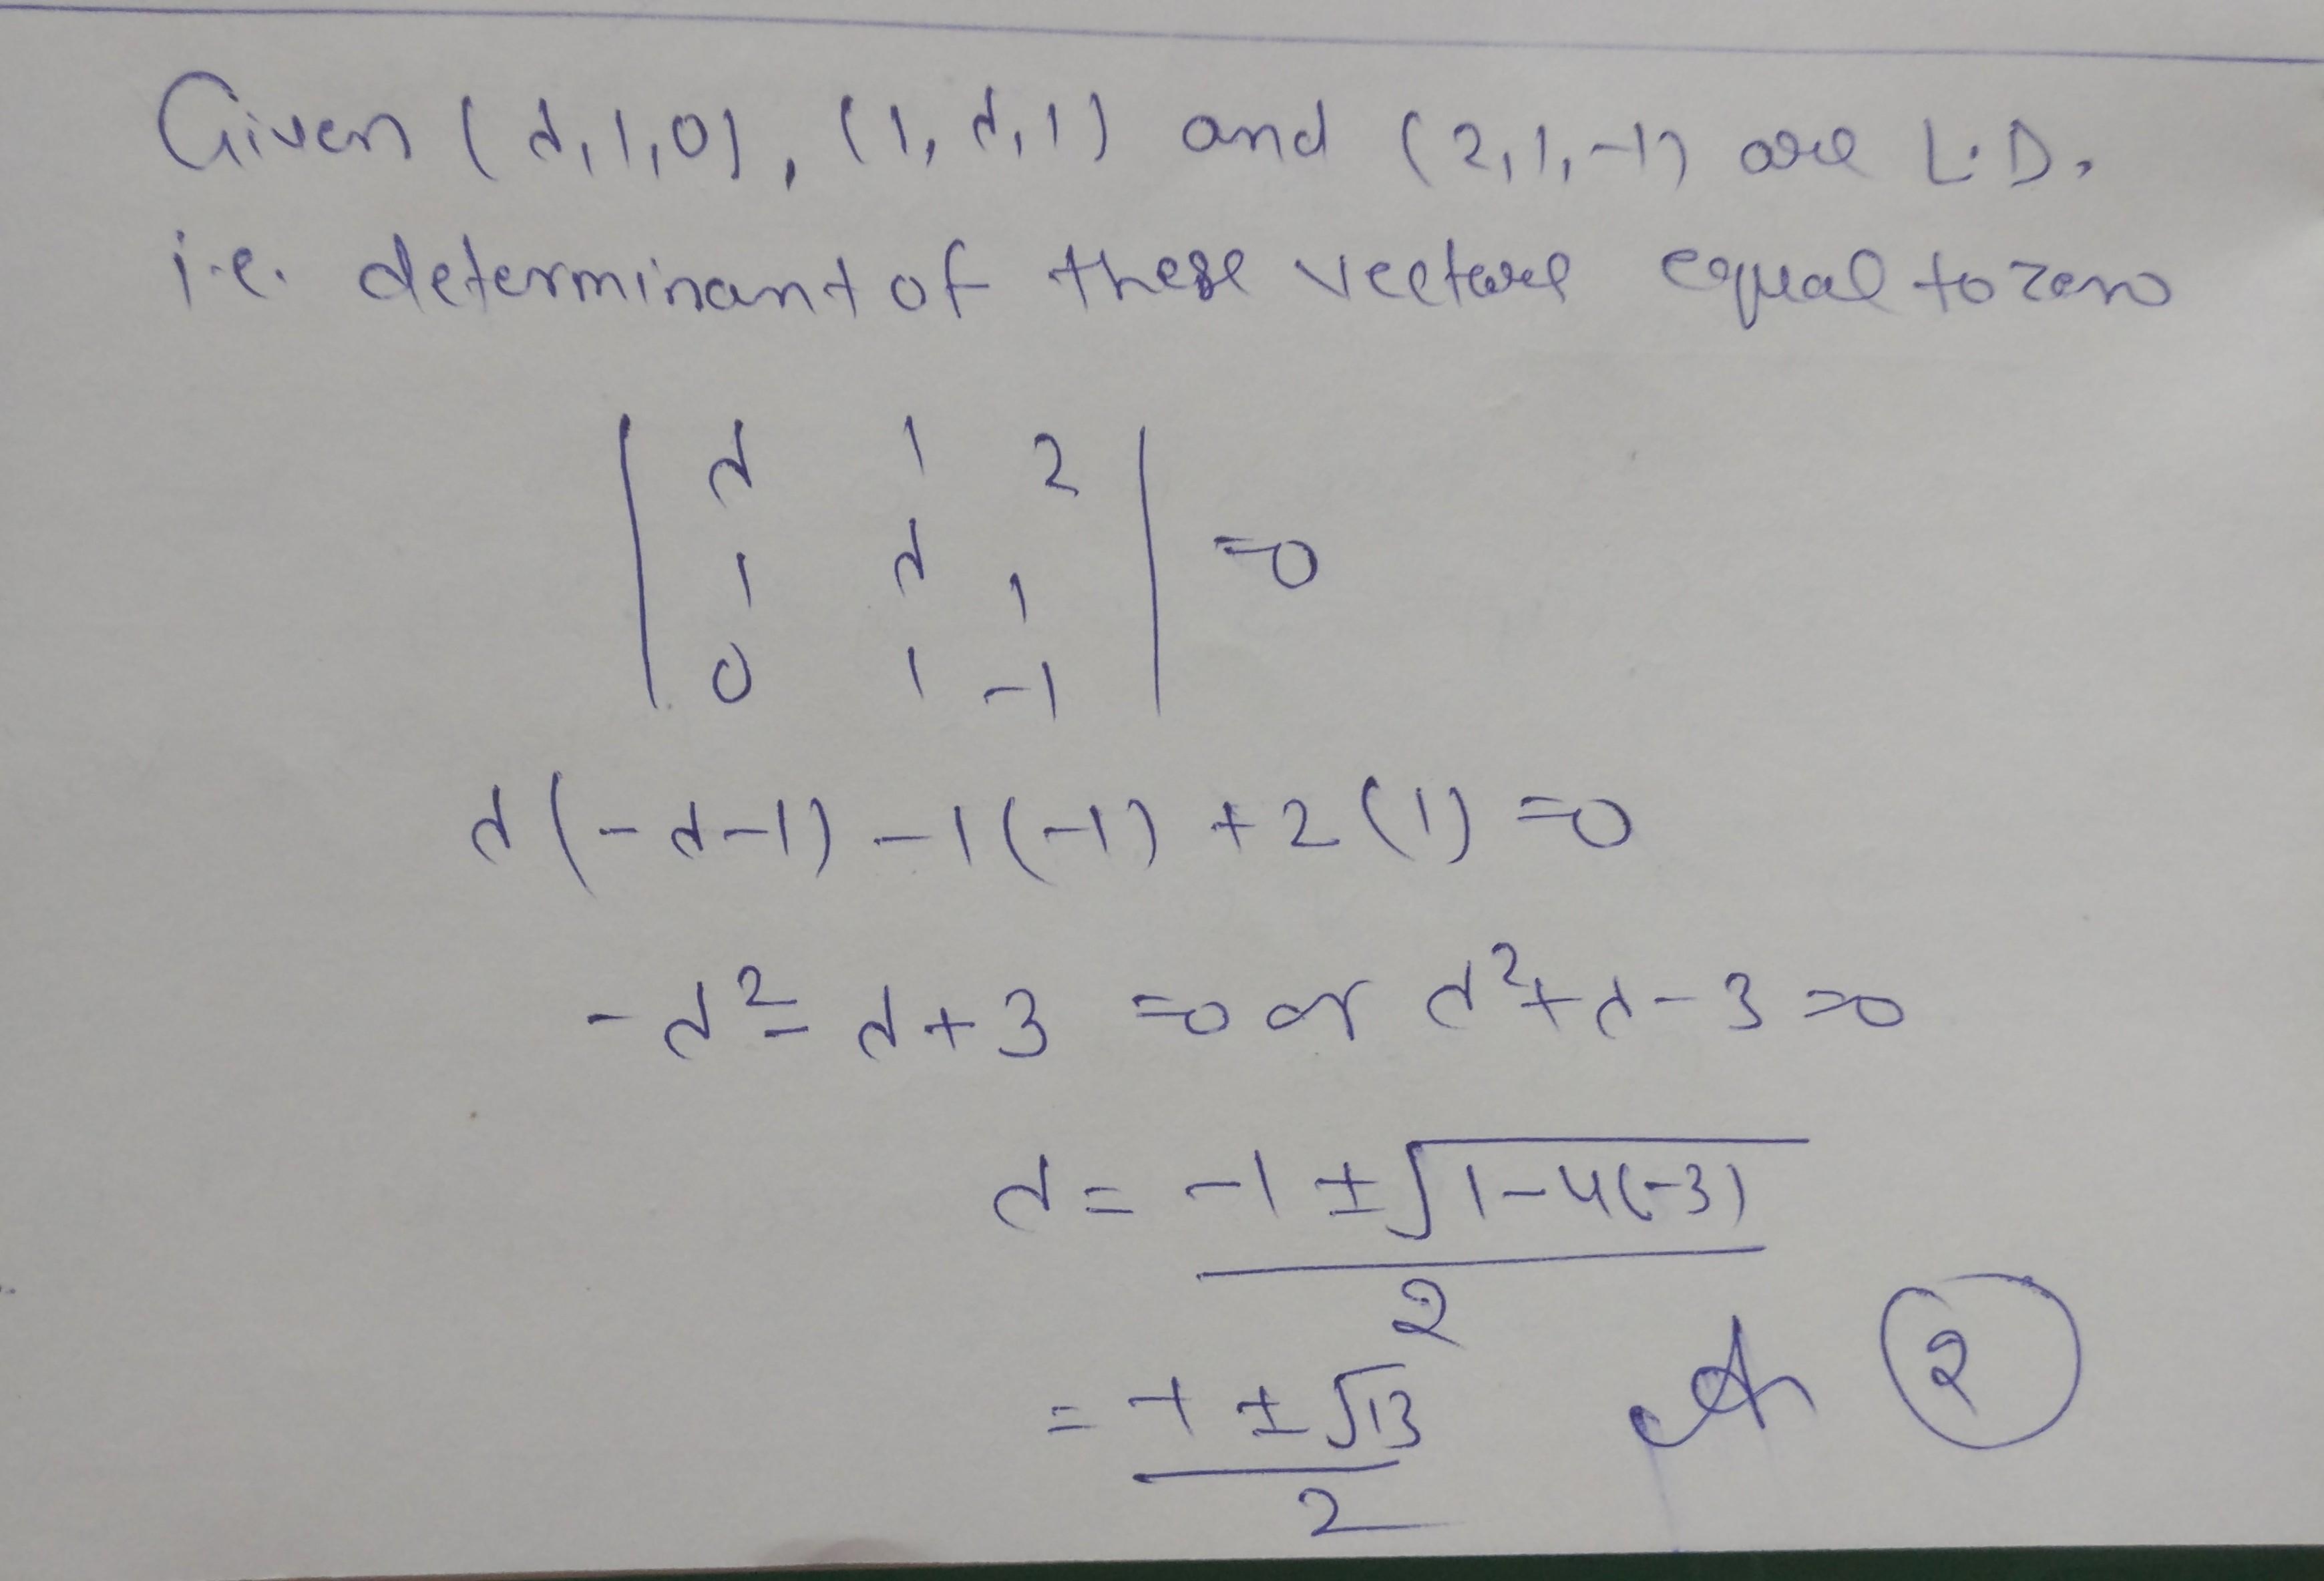 Given (d,1,0), (1,d,1) and (2,1,-1) are L.D.
i.e. determinant of these vectors equal to zero
| d 1 2 |
| 1 d 1 | =0
| 0 1 -1 |
d(-d-1) -1(-1) +2(1) =0
-d² - d+3 =0 or d²+d-3=0
d = (-1 ± √(1-4(-3))) / 2
= (-1 ± √13) / 2 (2)